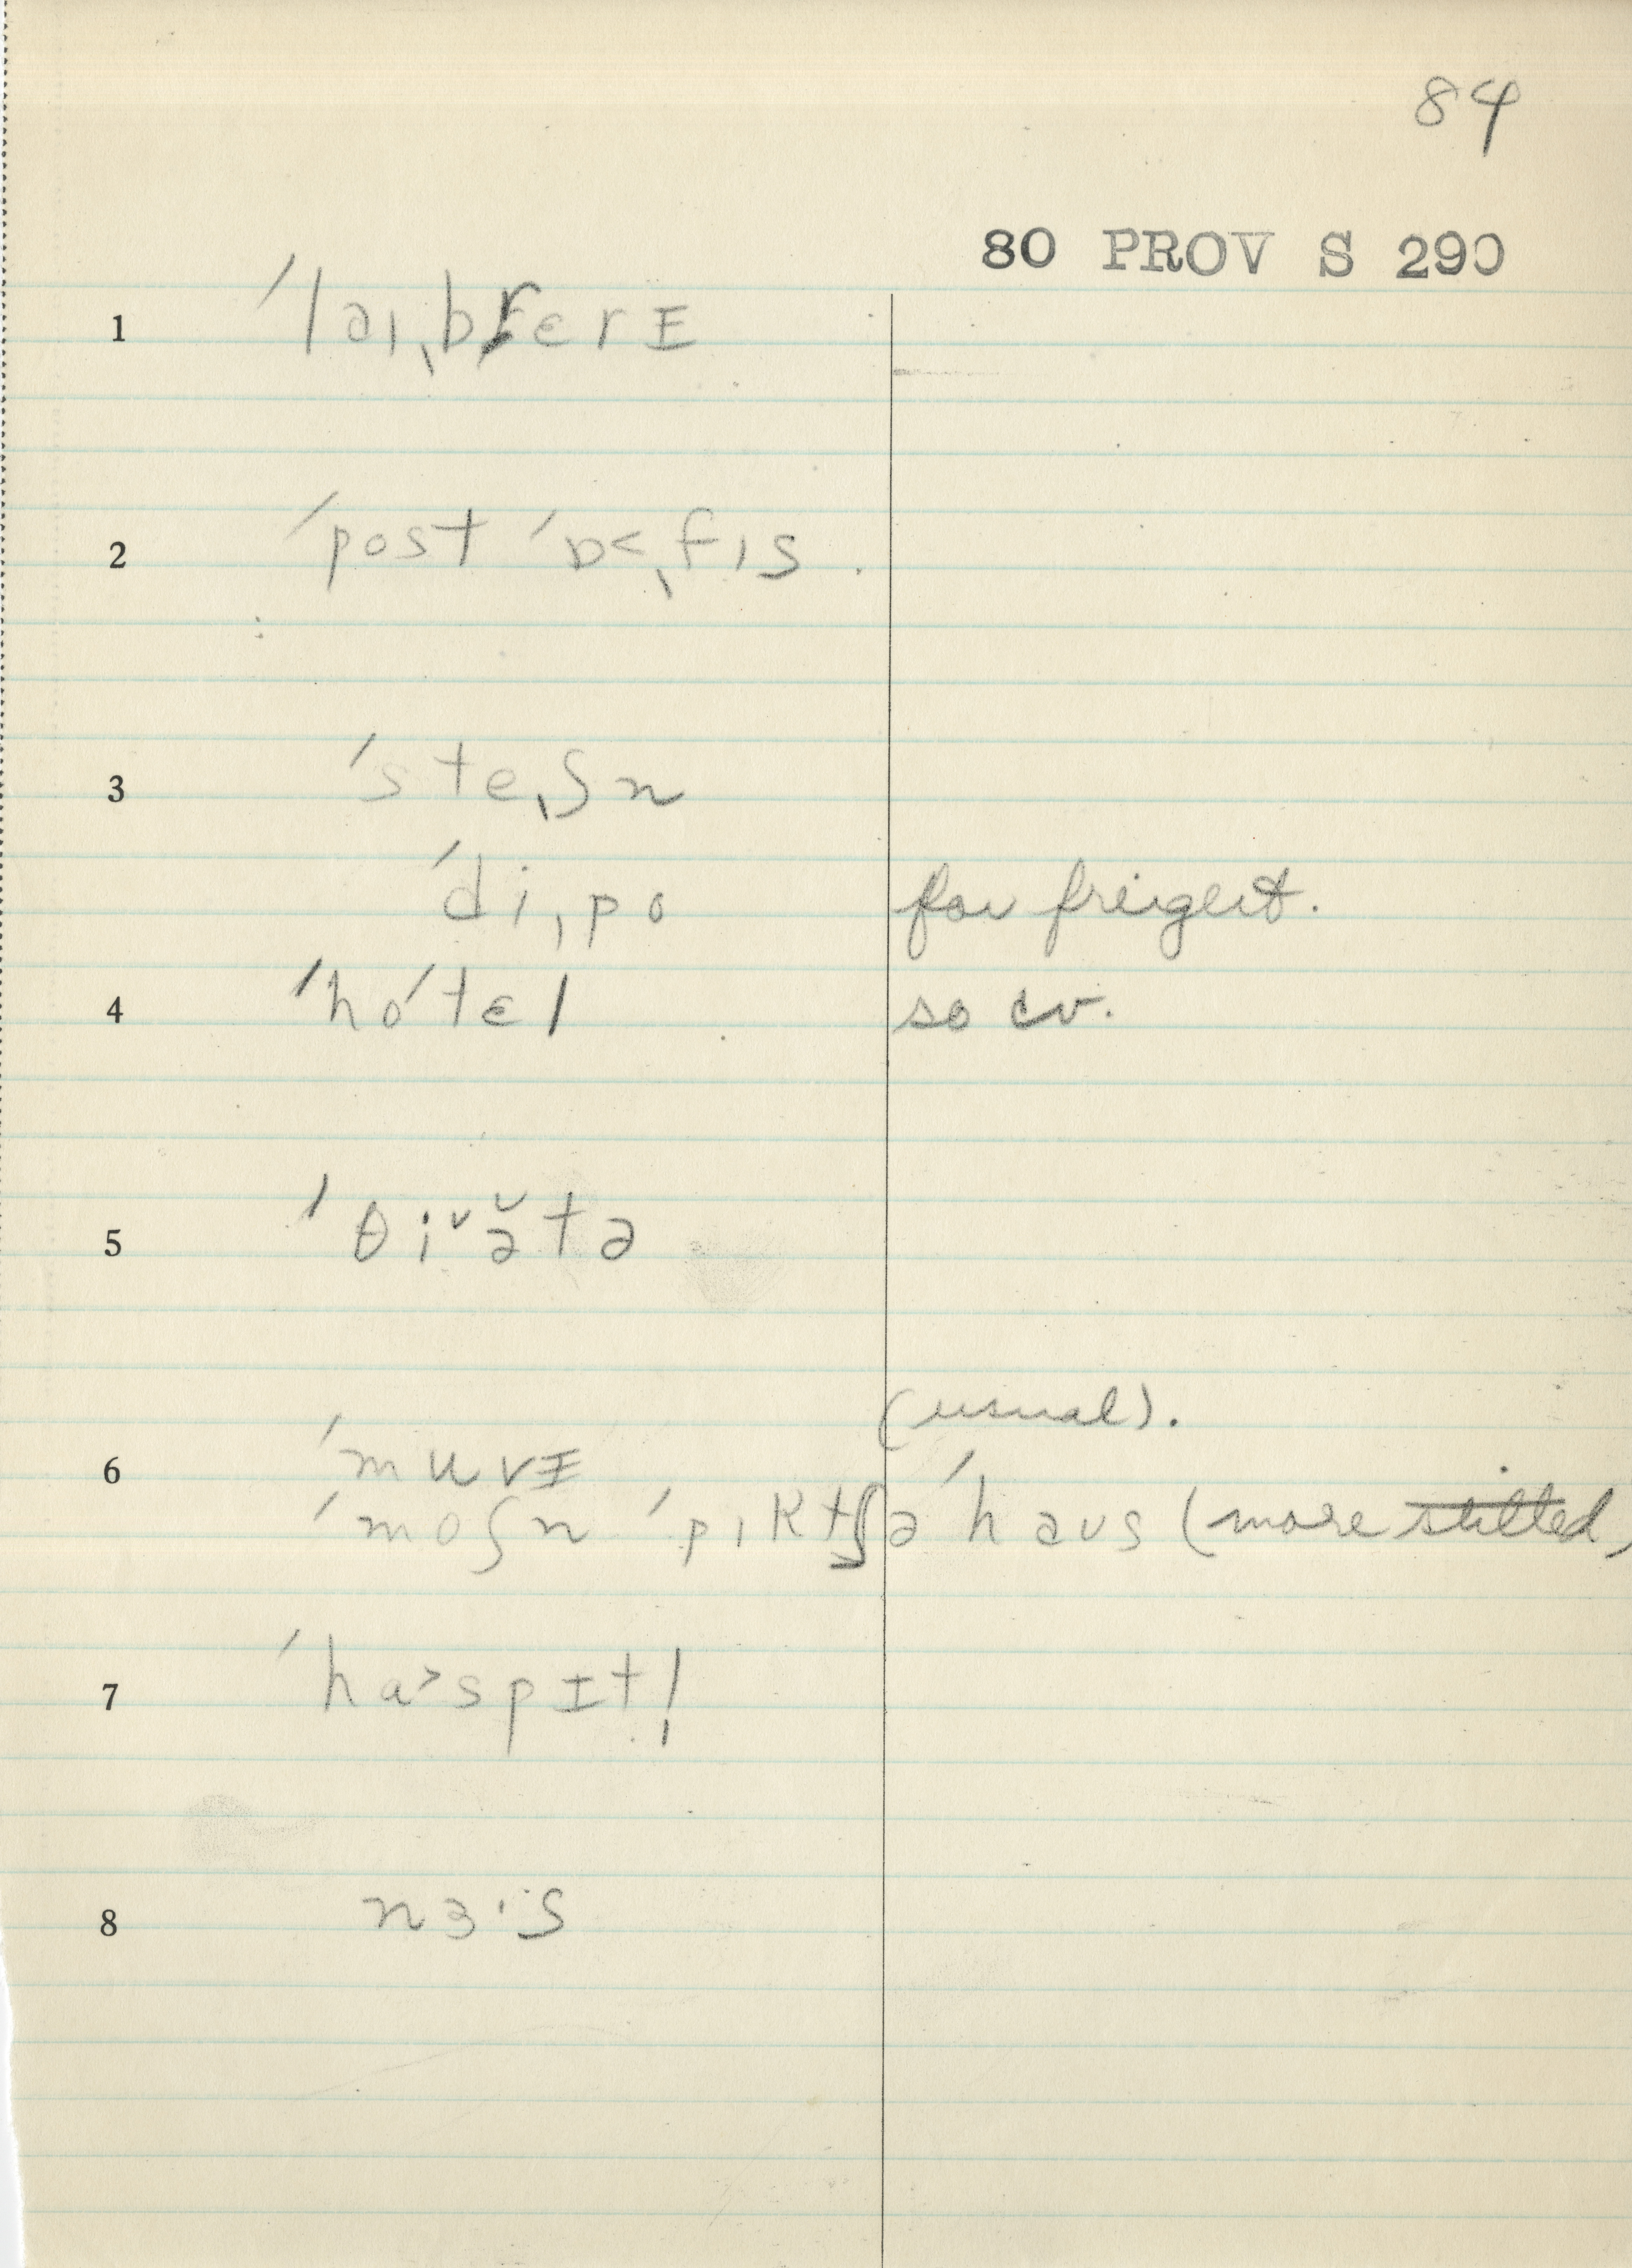 84
80 PROV S 290
1 ˈlaɪˌbrɛrɪ
2 ˈpost ˈɒ˂ˌfɪs.
3 ˈsteˌʃn
ˈdiˌpo for freight.
4 ˈhoˈtɛl so cv.
5 ˈθiˇə̆tə
(usual).
6 ˈmuvɪ
ˈmoʃn ˈpɪktʃə ˈhaʊs (more stilted)
7 ˈhɑ˃spɪtl̩
8 nɜˑs